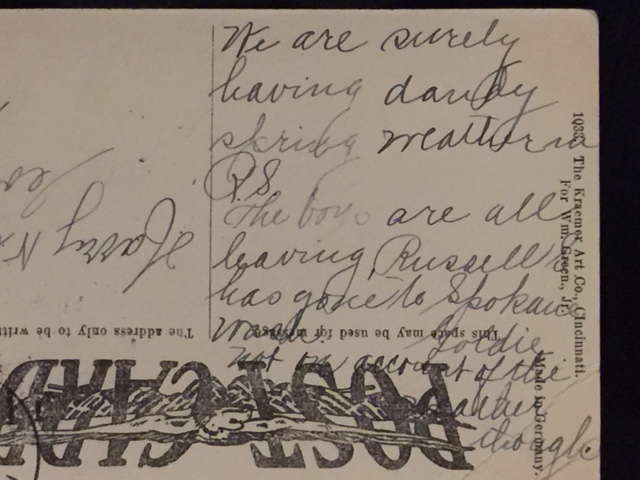 We are surely
having dandy
spring weather
P.S.
The boys are all
leaving, Russell
has gone to Spokane
Goldie
not on account of the
though.
Harry
The address only to be writt
This space may be used for message
POST CARD
1033, The Kraemer Art Co., Cincinnati.
For Wm. Green., Jr.
Made in Germany.